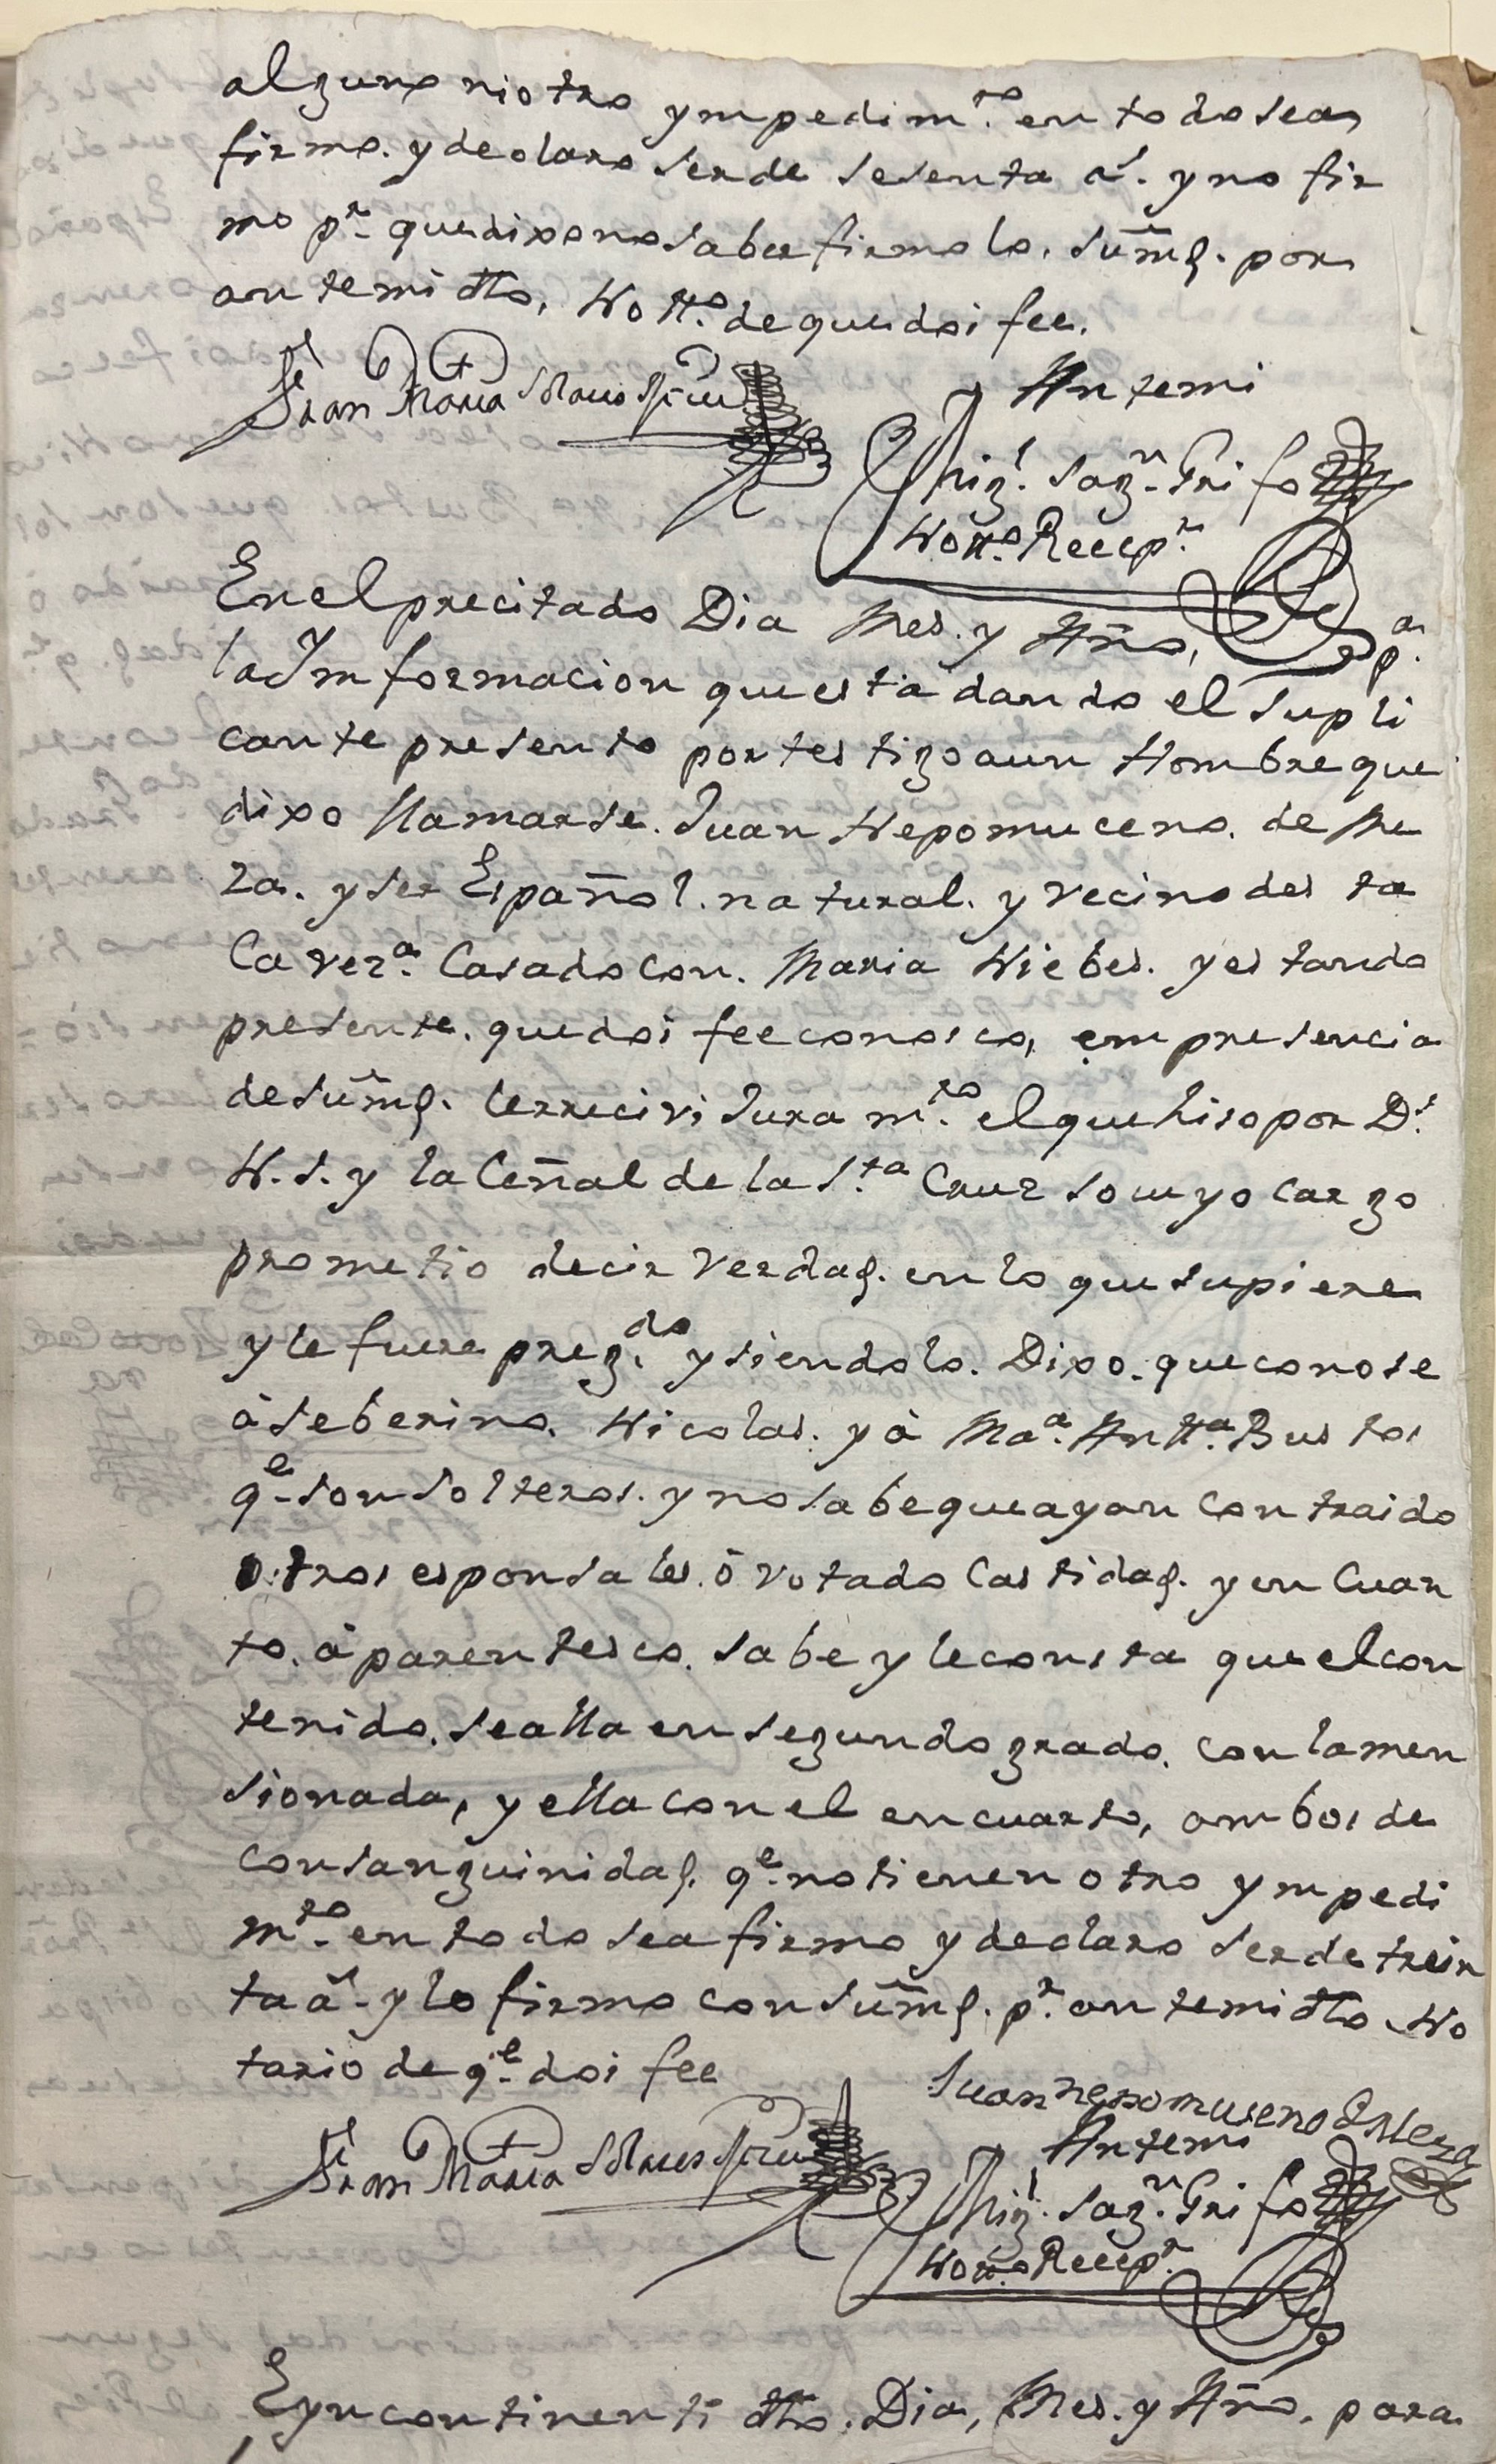 alguno niotro ympedim.to en todo sea
firmo. y declaro serde sesenta a.s y no fir
mo p.r quedixo no saber firmolo. sumd. por
antemi dho. Nott.o de que doi fee.
Juan Maria
Antemi
Mig.l Saz.n Grifo
Nott.o Recep.r
Enel precitado Dia Mes. y Año, p.a
la Imformacion que está dando el Supli
cante presento por testigo aun Hombre que
dixo llamarse. Juan Nepomuceno. de Me
za. y ser Español. natural. y vecino des ta
Cavez.a Casado con. Maria Niebes. y estando
presente. que doi fee conosco, em presencia
de sumd. lerrecivi Jura m.to el que hiso por D.s
N. S. y la Ceñal de la S.ta Cruz so cuyo cargo
prometio decir verdad. en lo que supiere
y le fuere preg.do y siendolo. Dixo. que conose
á Seberino. Nicolas. y á Ma.a Antt.a Bustos
q.e son solteros. y no sabe que ayan contraido
otros esponsales. ó votado Castidad. y en Cuan
to. á parentesco. sabe y le consta que el con
tenido. sealla en segundo grado. con la men
sionada, y ella con el en cuarto, ambos de
consanguinidad. q.e no tienen otro ympedi
m.to en todo sea firmo y declaro ser de trein
ta a.s y lo firmo con sumd. p.r antemi dho No
tario de q.e doi fee
Juan nepomuseno de Meza
Juan Maria
Antemi
Mig.l Saz.n Grifo
Nott.o Recep.r
Eyncontinenti dho. Dia, Mes. y Año. para